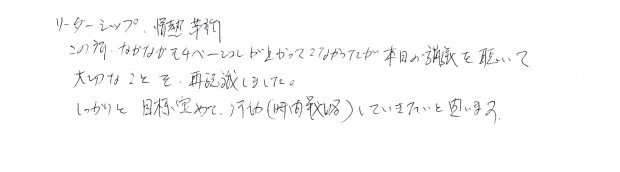 リーダーシップ、情熱 革新
この所、なかなかモチベーションが上がってこなかったが本日の講義を聴いて
大切なことを、再認識しました。
しっかりと目標定めて、行動(時間戦略)していきたいと思います。